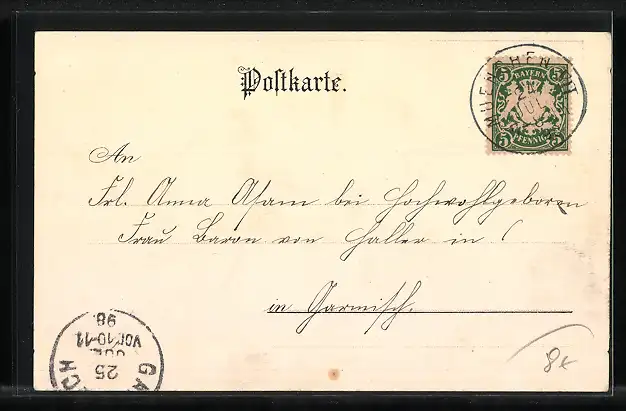 Postkarte.
5 BAYERN 5
5 PFENNIG 5
MUENCHEN
JUL
An
Frl. Anna Asam bei Hochwohlgeboren
Frau Baron von Haller in (
in Garmisch.
GA
25
JUL
VOR 10-11
98.
CH
8x